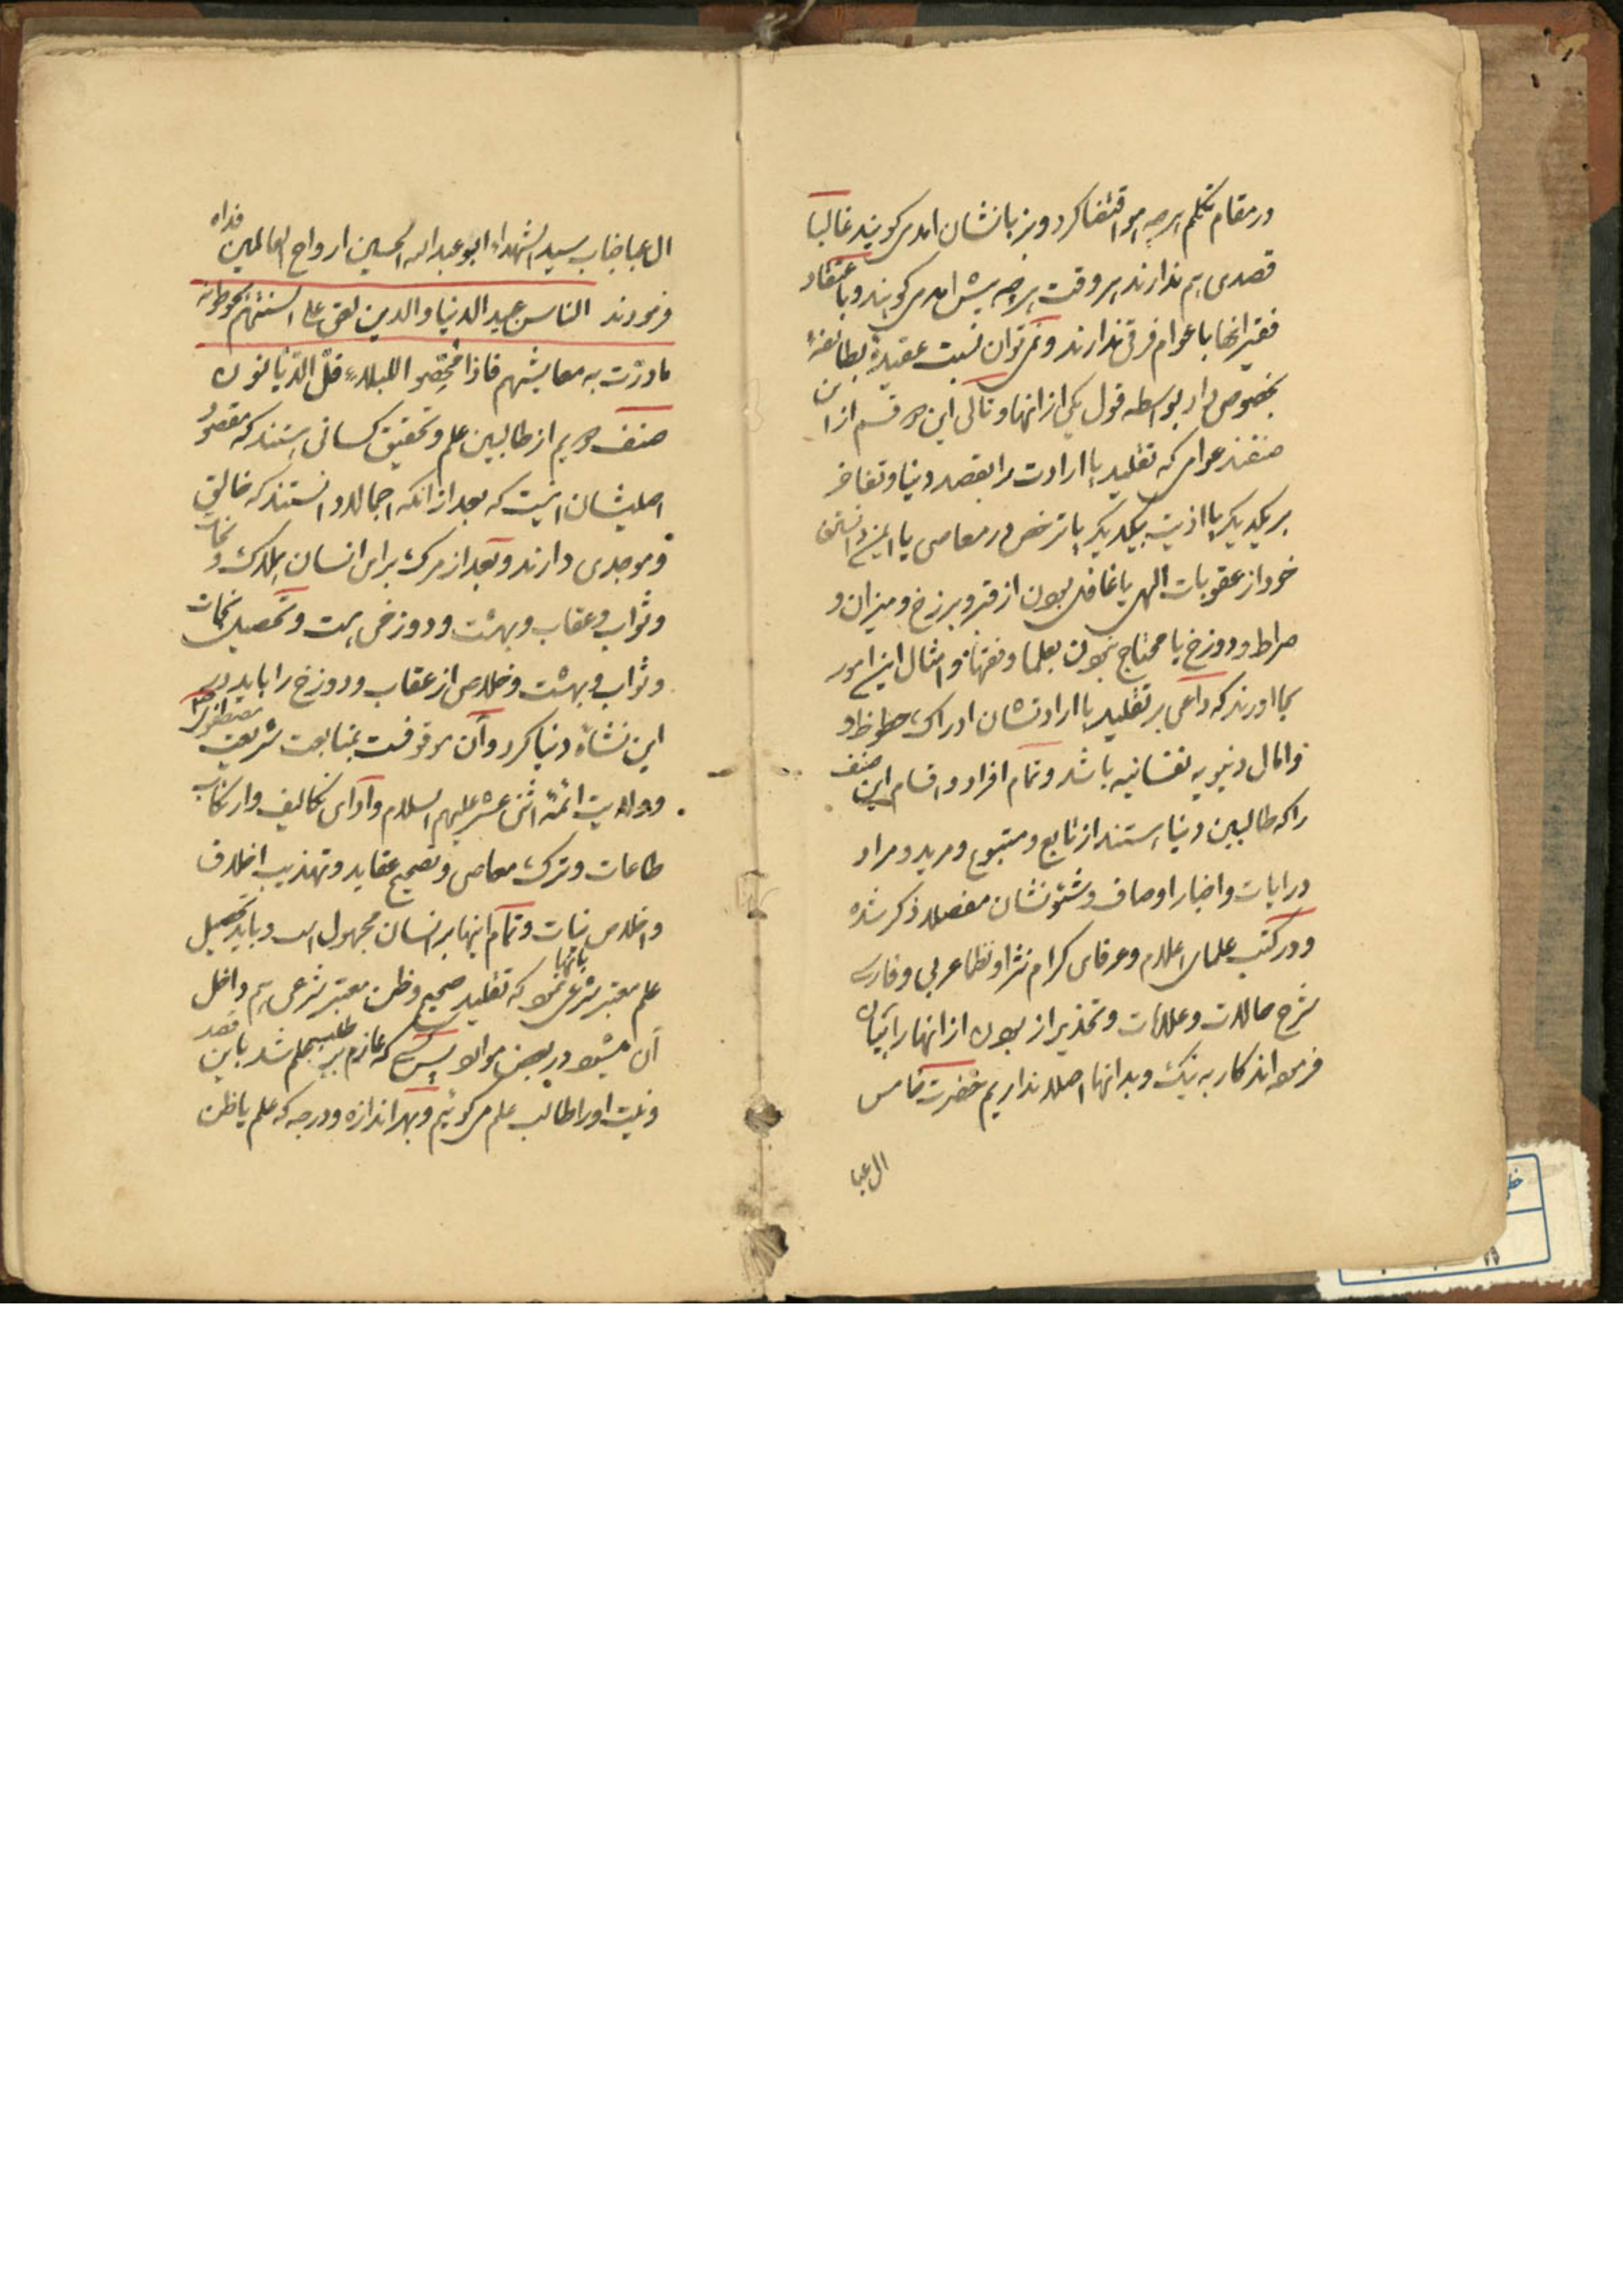 در مقام تکلم هرچه هوا اقتضا کرد و بر زبانشان امد می‌کویند غالبا
قصدی هم ندارند هر وقت هرچه پیش امد می‌کویند و باعتقاد
فقیر انها با عوام فرقی ندارند و نمی‌توان نسبت عقیدهٔ بطائفهٔ
بخصوص داد بواسطه قول یکی از انها و تالی این دو قسم از این
صنفند عوامی که تقلید یا ارادت را بقصد دنیا و تفاخر
بر یکدیکر یا اذیت بیکدیکر یا ترخص در معاصی یا ایمن دانستن
خود از عقوبات الهی یا غافل بودن از قبر و برزخ و میزان و
صراط و دوزخ یا محتاج نبودن بعلما و فقها و امثال این امور
بجا اورند که داعی بر تقلید یا ارادتشان ادراک حظوظ و
و امال دنیویه نفسانیه باشد و تمام افراد و اقسام این صنف
را که طالبین دنیا هستند از تابع و متبوع و مرید و مراد
در ایات و اخبار اوصاف و شئونشان مفصلا ذکر شده
و در کتب علمای اعلام و عرفای کرام نثرا و نظما عربی و فارسی
شرح حالات و علامات و تحذیر از بودن از انها را بیان
فرموده‌اند کار به نیک و بد انها اصلا نداریم حضرت خامس
ال عبا
ال عبا جناب سید الشهداء ابو عبد الله الحسین ارواح العالمین فداه
فرمودند الناس عبید الدنیا والدین لعق علی السنتهم یحوطونه
مادرّت به معایشهم فاذا مُحّصوا للبلاء قلّ الدّیّانون
صنف دویم از طالبین علم و تحقیق کسانی هستند که مقصود
اصلیشان اینست که بعد از انکه اجمالا دانستند که خالق
و موجدی دارند و بعد از مرک برای انسان هلاک و نجات
و ثواب و عقاب و بهشت و دوزخی هست و تحصیل نجات
و ثواب و بهشت و خلاص از عقاب و دوزخ را باید در
این نشاهٔ دنیا کرد و آن موقوفست بمتابعت شریعت مصطفوی
و ولایت ائمهٔ اثنی عشر علیهم السلام و ادای تکالیف و ارتکاب
طاعات و ترک معاصی و تصحیح عقاید و تهذیب اخلاق
و اخلاص نیات و تمام اینها بر انسان مجهول است و باید تحصیل
علم معتبر شرعی بانها نمود که تقلید صحیح و ظن معتبر شرعی هم داخل
آن میشود در بعض موارد پس کسی که عازم بر طلب علم شد باین قصد
و نیت او را طالب علم می‌کوئیم و بهر اندازه و درجه که علم یا ظن